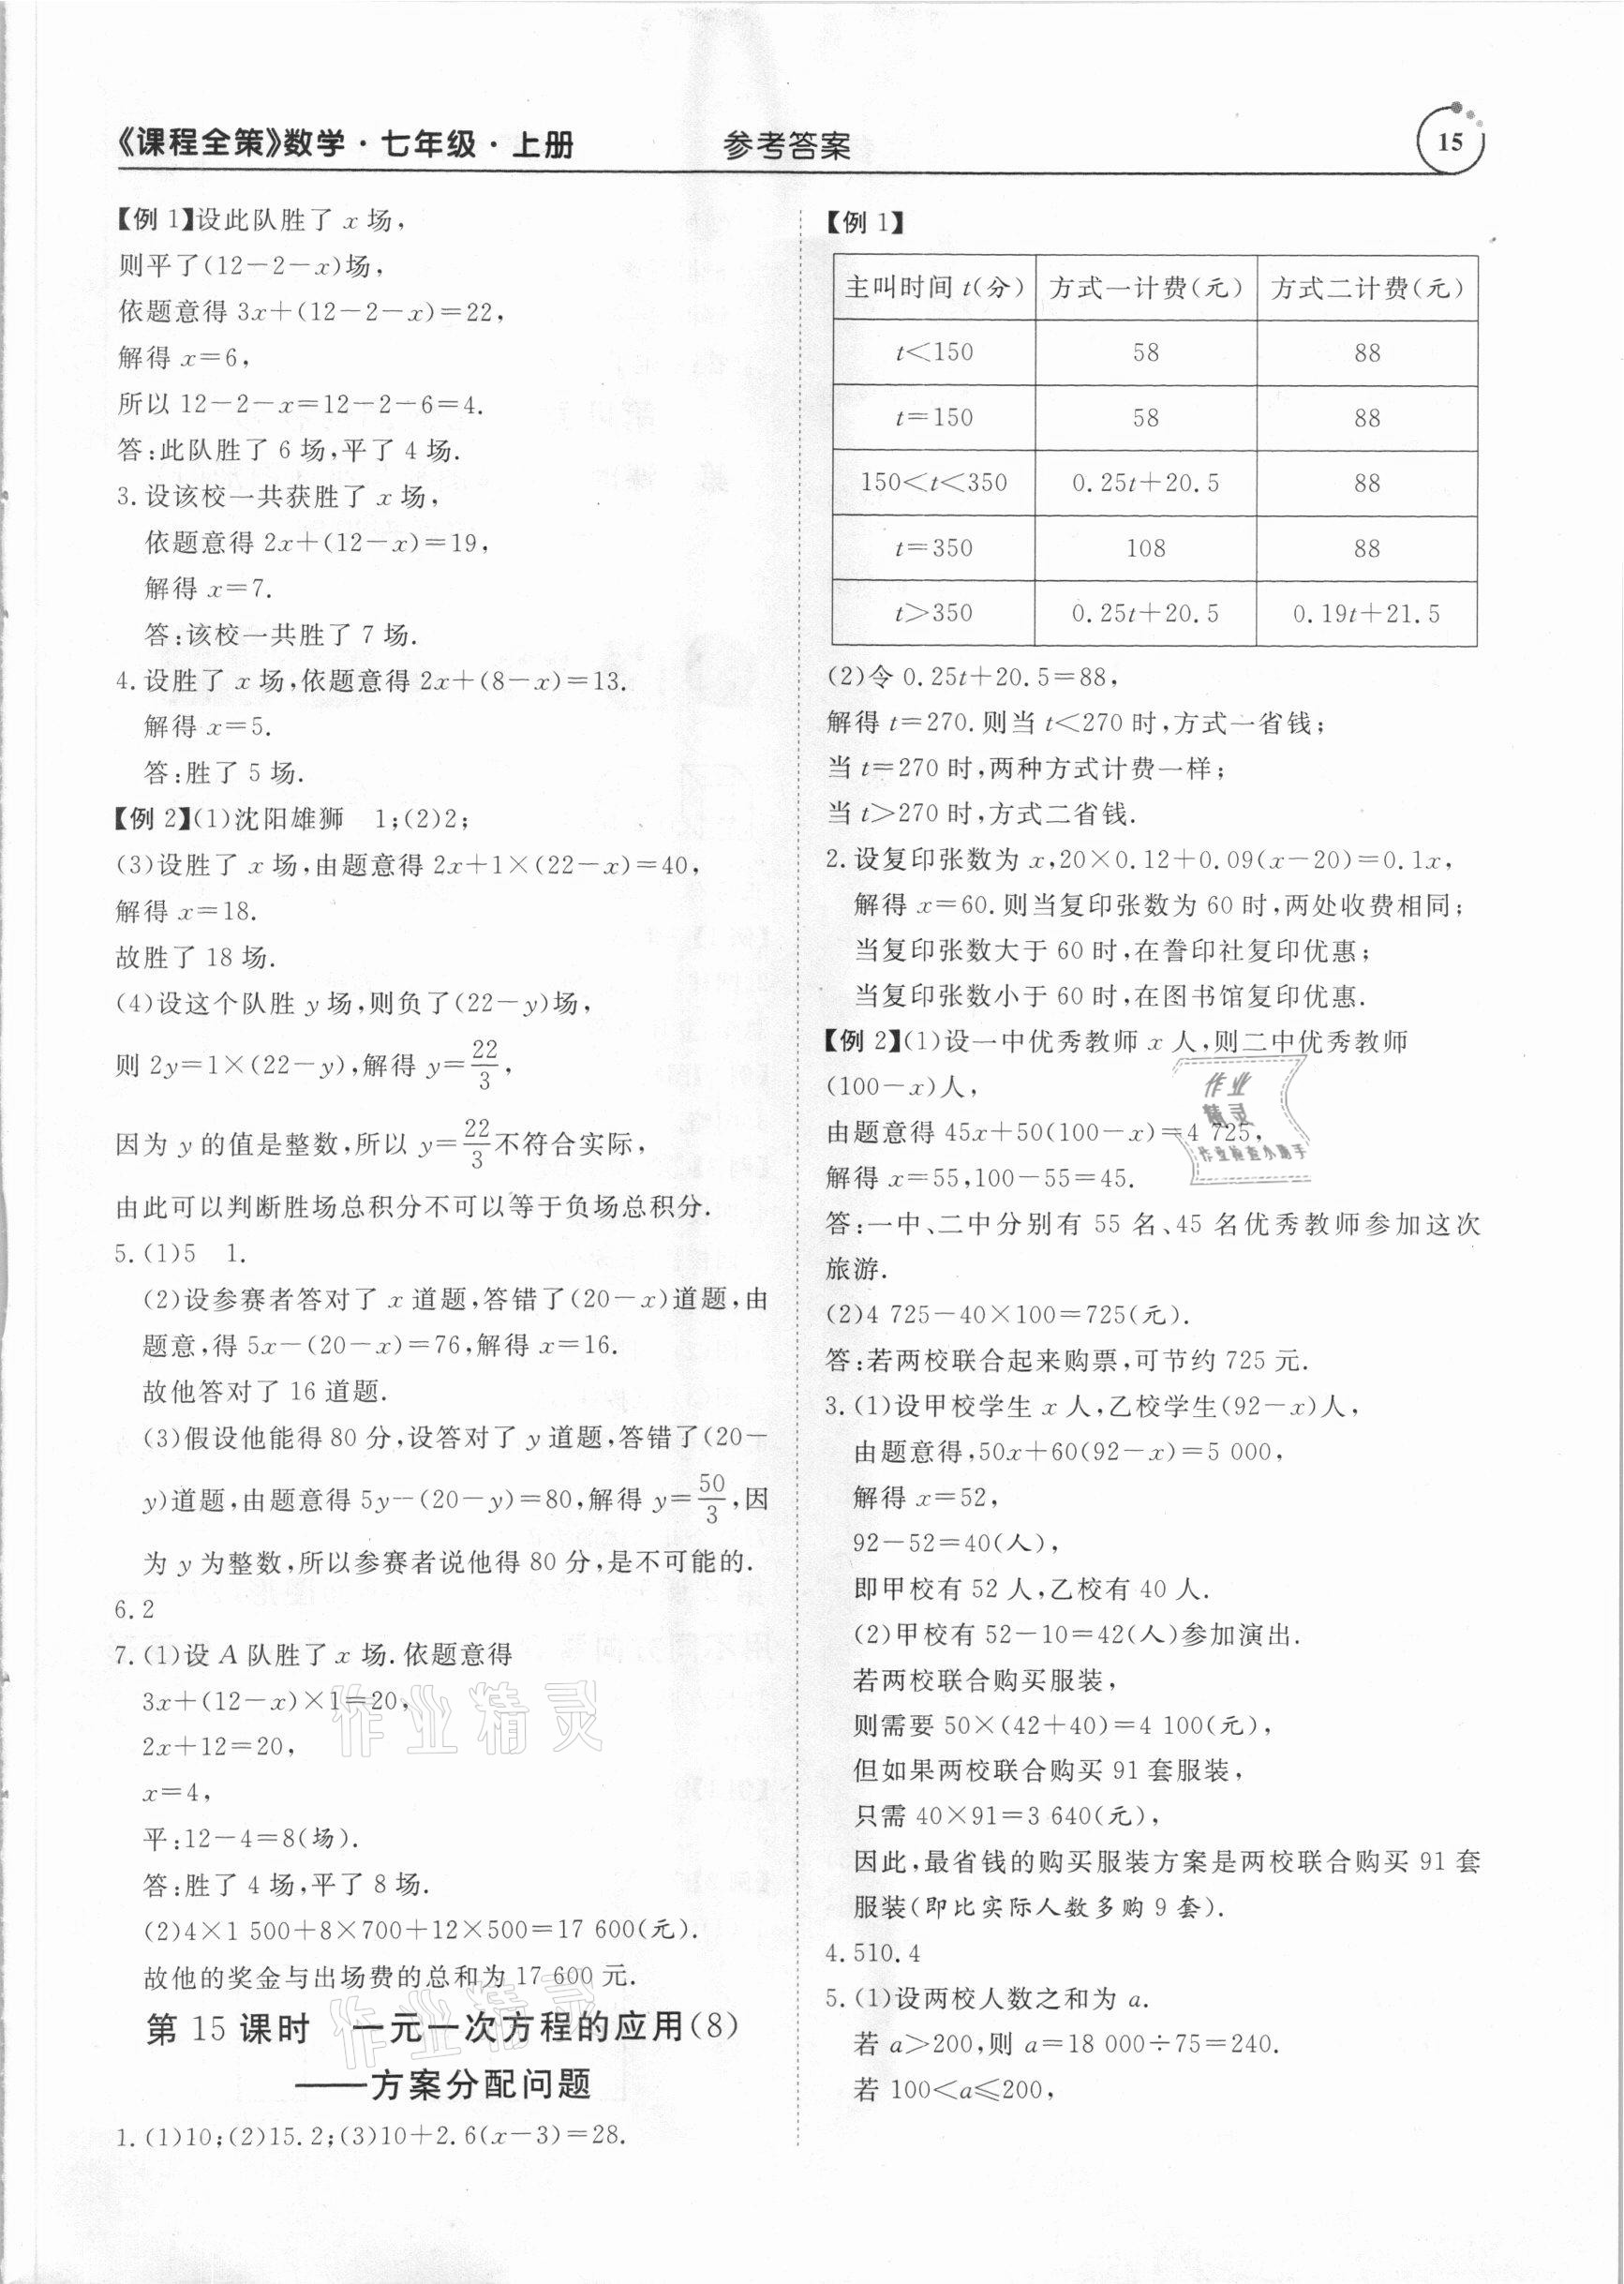 《课程全策》数学·七年级·上册
参考答案
15
【例 1】设此队胜了 x 场,
则平了(12-2-x)场,
依题意得 3x+(12-2-x)=22,
解得 x=6,
所以 12-2-x=12-2-6=4.
答:此队胜了 6 场,平了 4 场.
3. 设该校一共获胜了 x 场,
依题意得 2x+(12-x)=19,
解得 x=7.
答:该校一共胜了 7 场.
4. 设胜了 x 场,依题意得 2x+(8-x)=13.
解得 x=5.
答:胜了 5 场.
【例 2】(1)沈阳雄狮 1;(2)2;
(3)设胜了 x 场,由题意得 2x+1×(22-x)=40,
解得 x=18.
故胜了 18 场.
(4)设这个队胜 y 场,则负了(22-y)场,
则 2y=1×(22-y),解得 y=22/3,
因为 y 的值是整数,所以 y=22/3不符合实际,
由此可以判断胜场总积分不可以等于负场总积分.
5. (1)5 1.
(2)设参赛者答对了 x 道题,答错了(20-x)道题,由
题意,得 5x-(20-x)=76,解得 x=16.
故他答对了 16 道题.
(3)假设他能得 80 分,设答对了 y 道题,答错了(20-
y)道题,由题意得 5y-(20-y)=80,解得 y=50/3,因
为 y 为整数,所以参赛者说他得 80 分,是不可能的.
6. 2
7. (1)设 A 队胜了 x 场. 依题意得
3x+(12-x)×1=20,
2x+12=20,
x=4,
平:12-4=8(场).
答:胜了 4 场,平了 8 场.
(2)4×1 500+8×700+12×500=17 600(元).
故他的奖金与出场费的总和为 17 600 元.
第 15 课时 一元一次方程的应用(8)
——方案分配问题
1. (1)10;(2)15.2;(3)10+2.6(x-3)=28.
【例 1】
主叫时间 t(分) 方式一计费(元) 方式二计费(元)
t<150 58 88
t=150 58 88
150<t<350 0.25t+20.5 88
t=350 108 88
t>350 0.25t+20.5 0.19t+21.5
(2)令 0.25t+20.5=88,
解得 t=270. 则当 t<270 时,方式一省钱;
当 t=270 时,两种方式计费一样;
当 t>270 时,方式二省钱.
2. 设复印张数为 x,20×0.12+0.09(x-20)=0.1x,
解得 x=60. 则当复印张数为 60 时,两处收费相同;
当复印张数大于 60 时,在誊印社复印优惠;
当复印张数小于 60 时,在图书馆复印优惠.
【例 2】(1)设一中优秀教师 x 人,则二中优秀教师
(100-x)人,
由题意得 45x+50(100-x)=4 725,
解得 x=55,100-55=45.
答:一中、二中分别有 55 名、45 名优秀教师参加这次
旅游.
(2)4 725-40×100=725(元).
答:若两校联合起来购票,可节约 725 元.
3. (1)设甲校学生 x 人,乙校学生(92-x)人,
由题意得,50x+60(92-x)=5 000,
解得 x=52,
92-52=40(人),
即甲校有 52 人,乙校有 40 人.
(2)甲校有 52-10=42(人)参加演出.
若两校联合购买服装,
则需要 50×(42+40)=4 100(元),
但如果两校联合购买 91 套服装,
只需 40×91=3 640(元),
因此,最省钱的购买服装方案是两校联合购买 91 套
服装(即比实际人数多购 9 套).
4. 510.4
5. (1)设两校人数之和为 a.
若 a>200,则 a=18 000÷75=240.
若 100<a⩽200,
作业
精灵
作业检查小助手
作业精灵
作业精灵